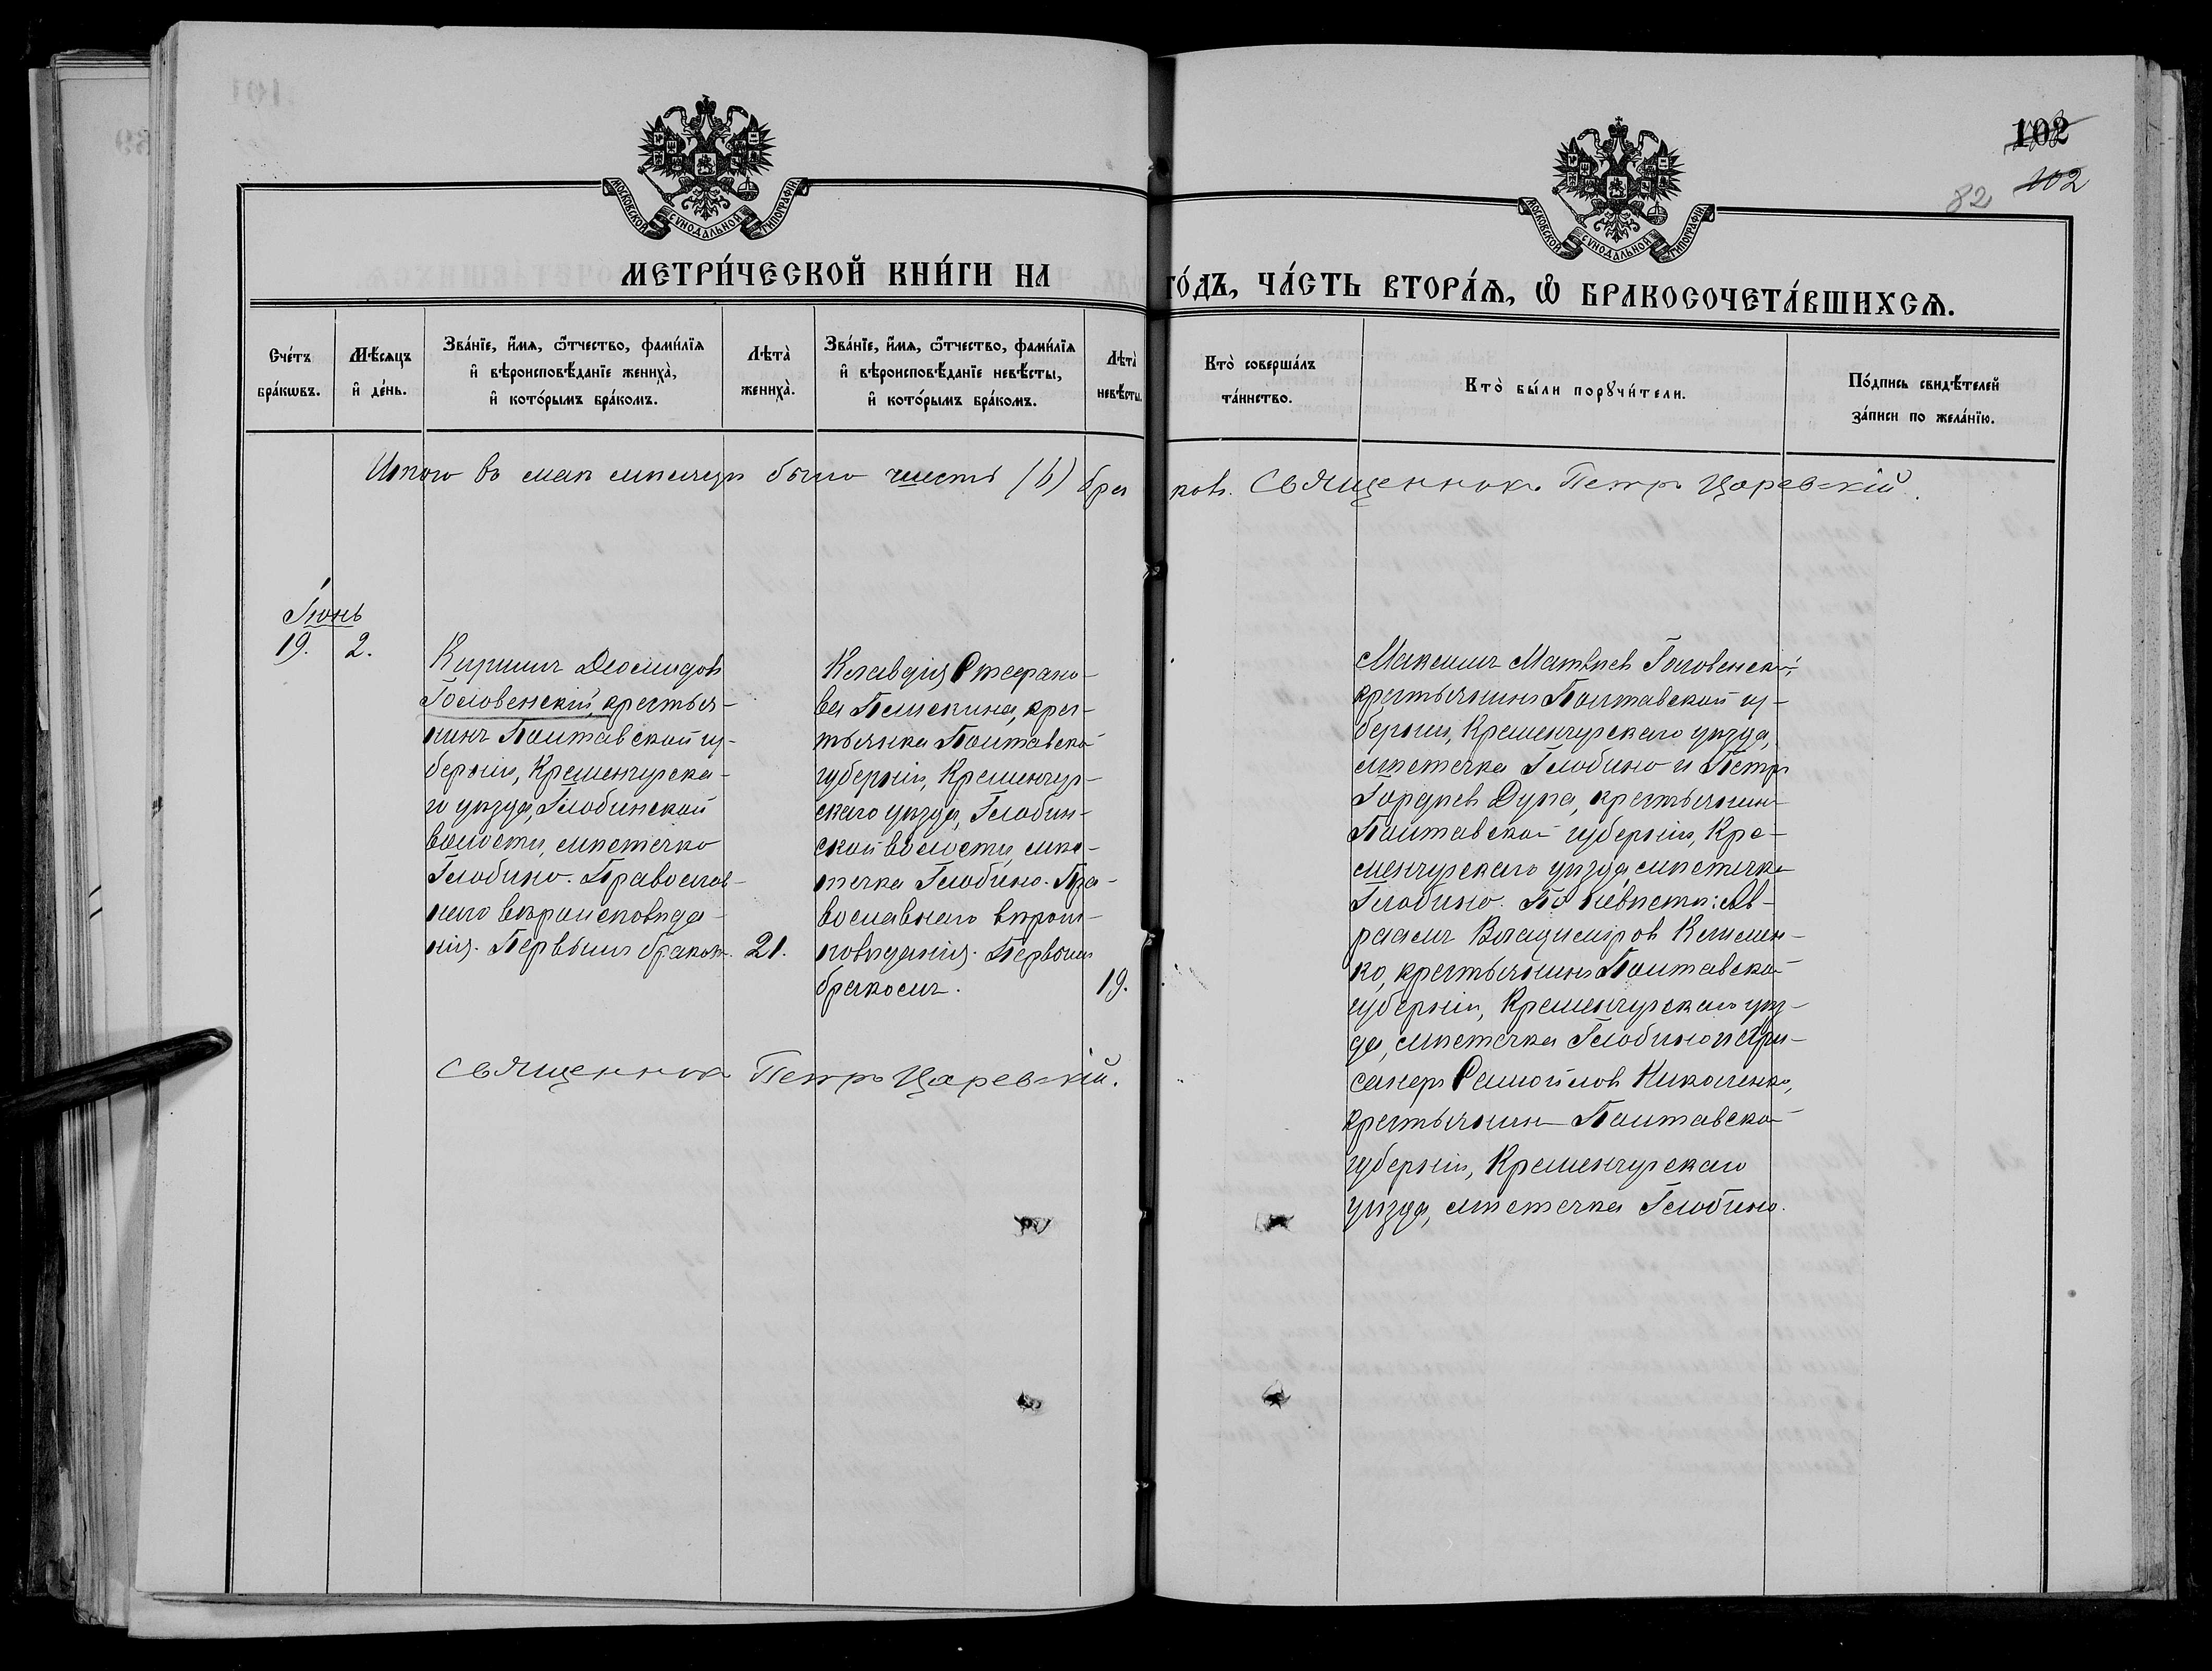 102
102
82
МОСКОВСКОЙ СѴНОДАЛЬНОЙ ТИПОГРАФІИ
МОСКОВСКОЙ СѴНОДАЛЬНОЙ ТИПОГРАФІИ
МЕТРИ́ЧЕСКОЙ КНИ́ГИ НА
ГО́ДЪ, ЧА́СТЬ ВТОРА́Ѧ, Ѽ БРАКОСОЧЕТА́ВШИХСѦ.
Сче́тъ
бра́кѡвъ.
Мѣ́сѧцъ
и҆ де́нь.
Зва́нїе, и҆́мѧ, ѻ҆́тчество, фами́лїѧ
и҆ вѣроисповѣ́данїе жениха̀,
и҆ кото́рымъ бра́комъ.
Лѣта̀
жениха̀.
Зва́нїе, и҆́мѧ, ѻ҆́тчество, фами́лїѧ
и҆ вѣроисповѣ́данїе невѣ́сты,
и҆ кото́рымъ бра́комъ.
Лѣта̀
невѣ́сты.
Кто̀ соверша́лъ
та́инство.
Кто̀ бы́ли порꙋчи́тели.
По́дпись свидѣ́телей
за́писи по жела́нїю.
Итого въ мак мѣсяцѣ было шесть (6) браковъ. Священникъ Петръ Царевскій.
Іюнь
19. 2.
Кириллъ Деомидовъ
Головенскій, крестья-
нинъ Полтавской гу-
берніи, Кременчугска-
го уѣзда, Глобинской
волости, мѣстечко
Глобино. Православ-
наго вѣроисповѣда-
нія. Первымъ бракомъ. 21.
Клавдія Стефано-
ва Пелискина, крес-
тьянка Полтавской
губерніи, Кременчуг-
скаго уѣзда, Глобин-
ской волости, мѣс-
течка Глобино. Пра-
вославнаго вѣроис-
повѣданія. Первымъ
бракомъ. 19.
Максимъ Матвѣевъ Головенскій,
крестьянинъ Полтавской гу-
берніи, Кременчугскаго уѣзда,
мѣстечка Глобино и Петръ
Гордѣевъ Дупа, крестьянинъ
Полтавской губерніи, Кре-
менчугскаго уѣзда мѣстечка
Глобино. По невѣстѣ: Ав-
раамъ Владиміровъ Клименко-
ко, крестьянинъ Полтавской
губерніи, Кременчугскаго уѣз-
да, мѣстечка Глобино и Хри-
санѳъ Самойловъ Николенко,
крестьянинъ Полтавской
губерніи, Кременчугскаго
уѣзда, мѣстечка Глобино.
Священникъ Петръ Царевскій.